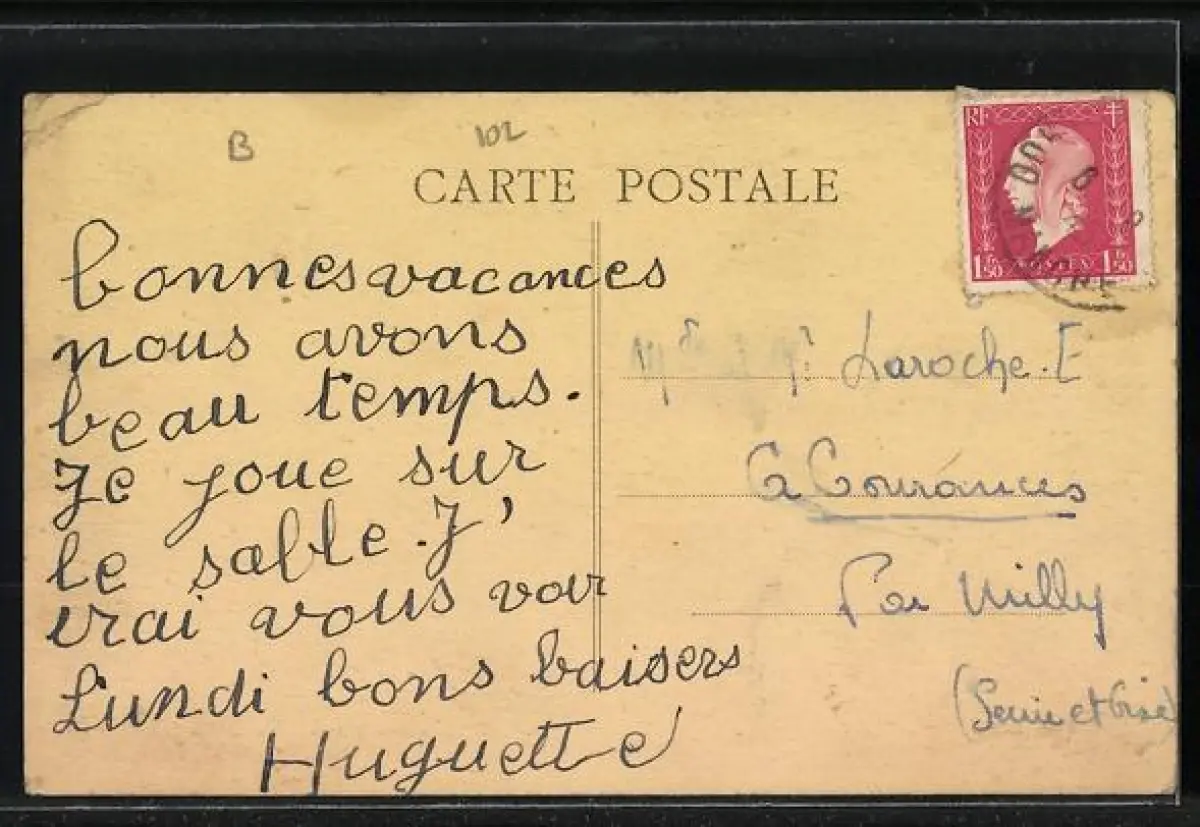 B
102
CARTE POSTALE
RF
1F50
1F50
POSTES
bonnes vacances
nous avons
beau temps.
Je joue sur
le sable. J'
irai vous voir
Lundi bons baisers
Huguette
Laroche. E
à Courances
Par Milly
(Seine et Oise)